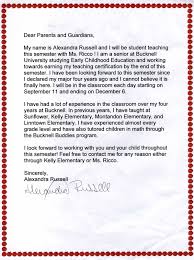 Dear Parents and Guardians,
My name is Alexandra Russell and I will be student teaching
this semester with Ms. Ricco! I am a senior at Bucknell
University studying Early Childhood Education and working
towards earning my teaching certification by the end of this
semester. I have been looking forward to this semester since
I declared my major four years ago and I cannot believe it is
finally here! I will be in the classroom each day starting on
September 11 and ending on December 6.
I have had a lot of experience in the classroom over my four
years at Bucknell. In previous years, I have taught at
Sunflower, Kelly Elementary, Montandon Elementary, and
Linntown Elementary. I have experienced almost every
grade level and have also tutored children in math through
the Bucknell Buddies program.
I look forward to working with you and your child throughout
this semester! Feel free to contact me for any reason either
through Kelly Elementary or Ms. Ricco.
Sincerely,
Alexandra Russell
Alexandra Russell